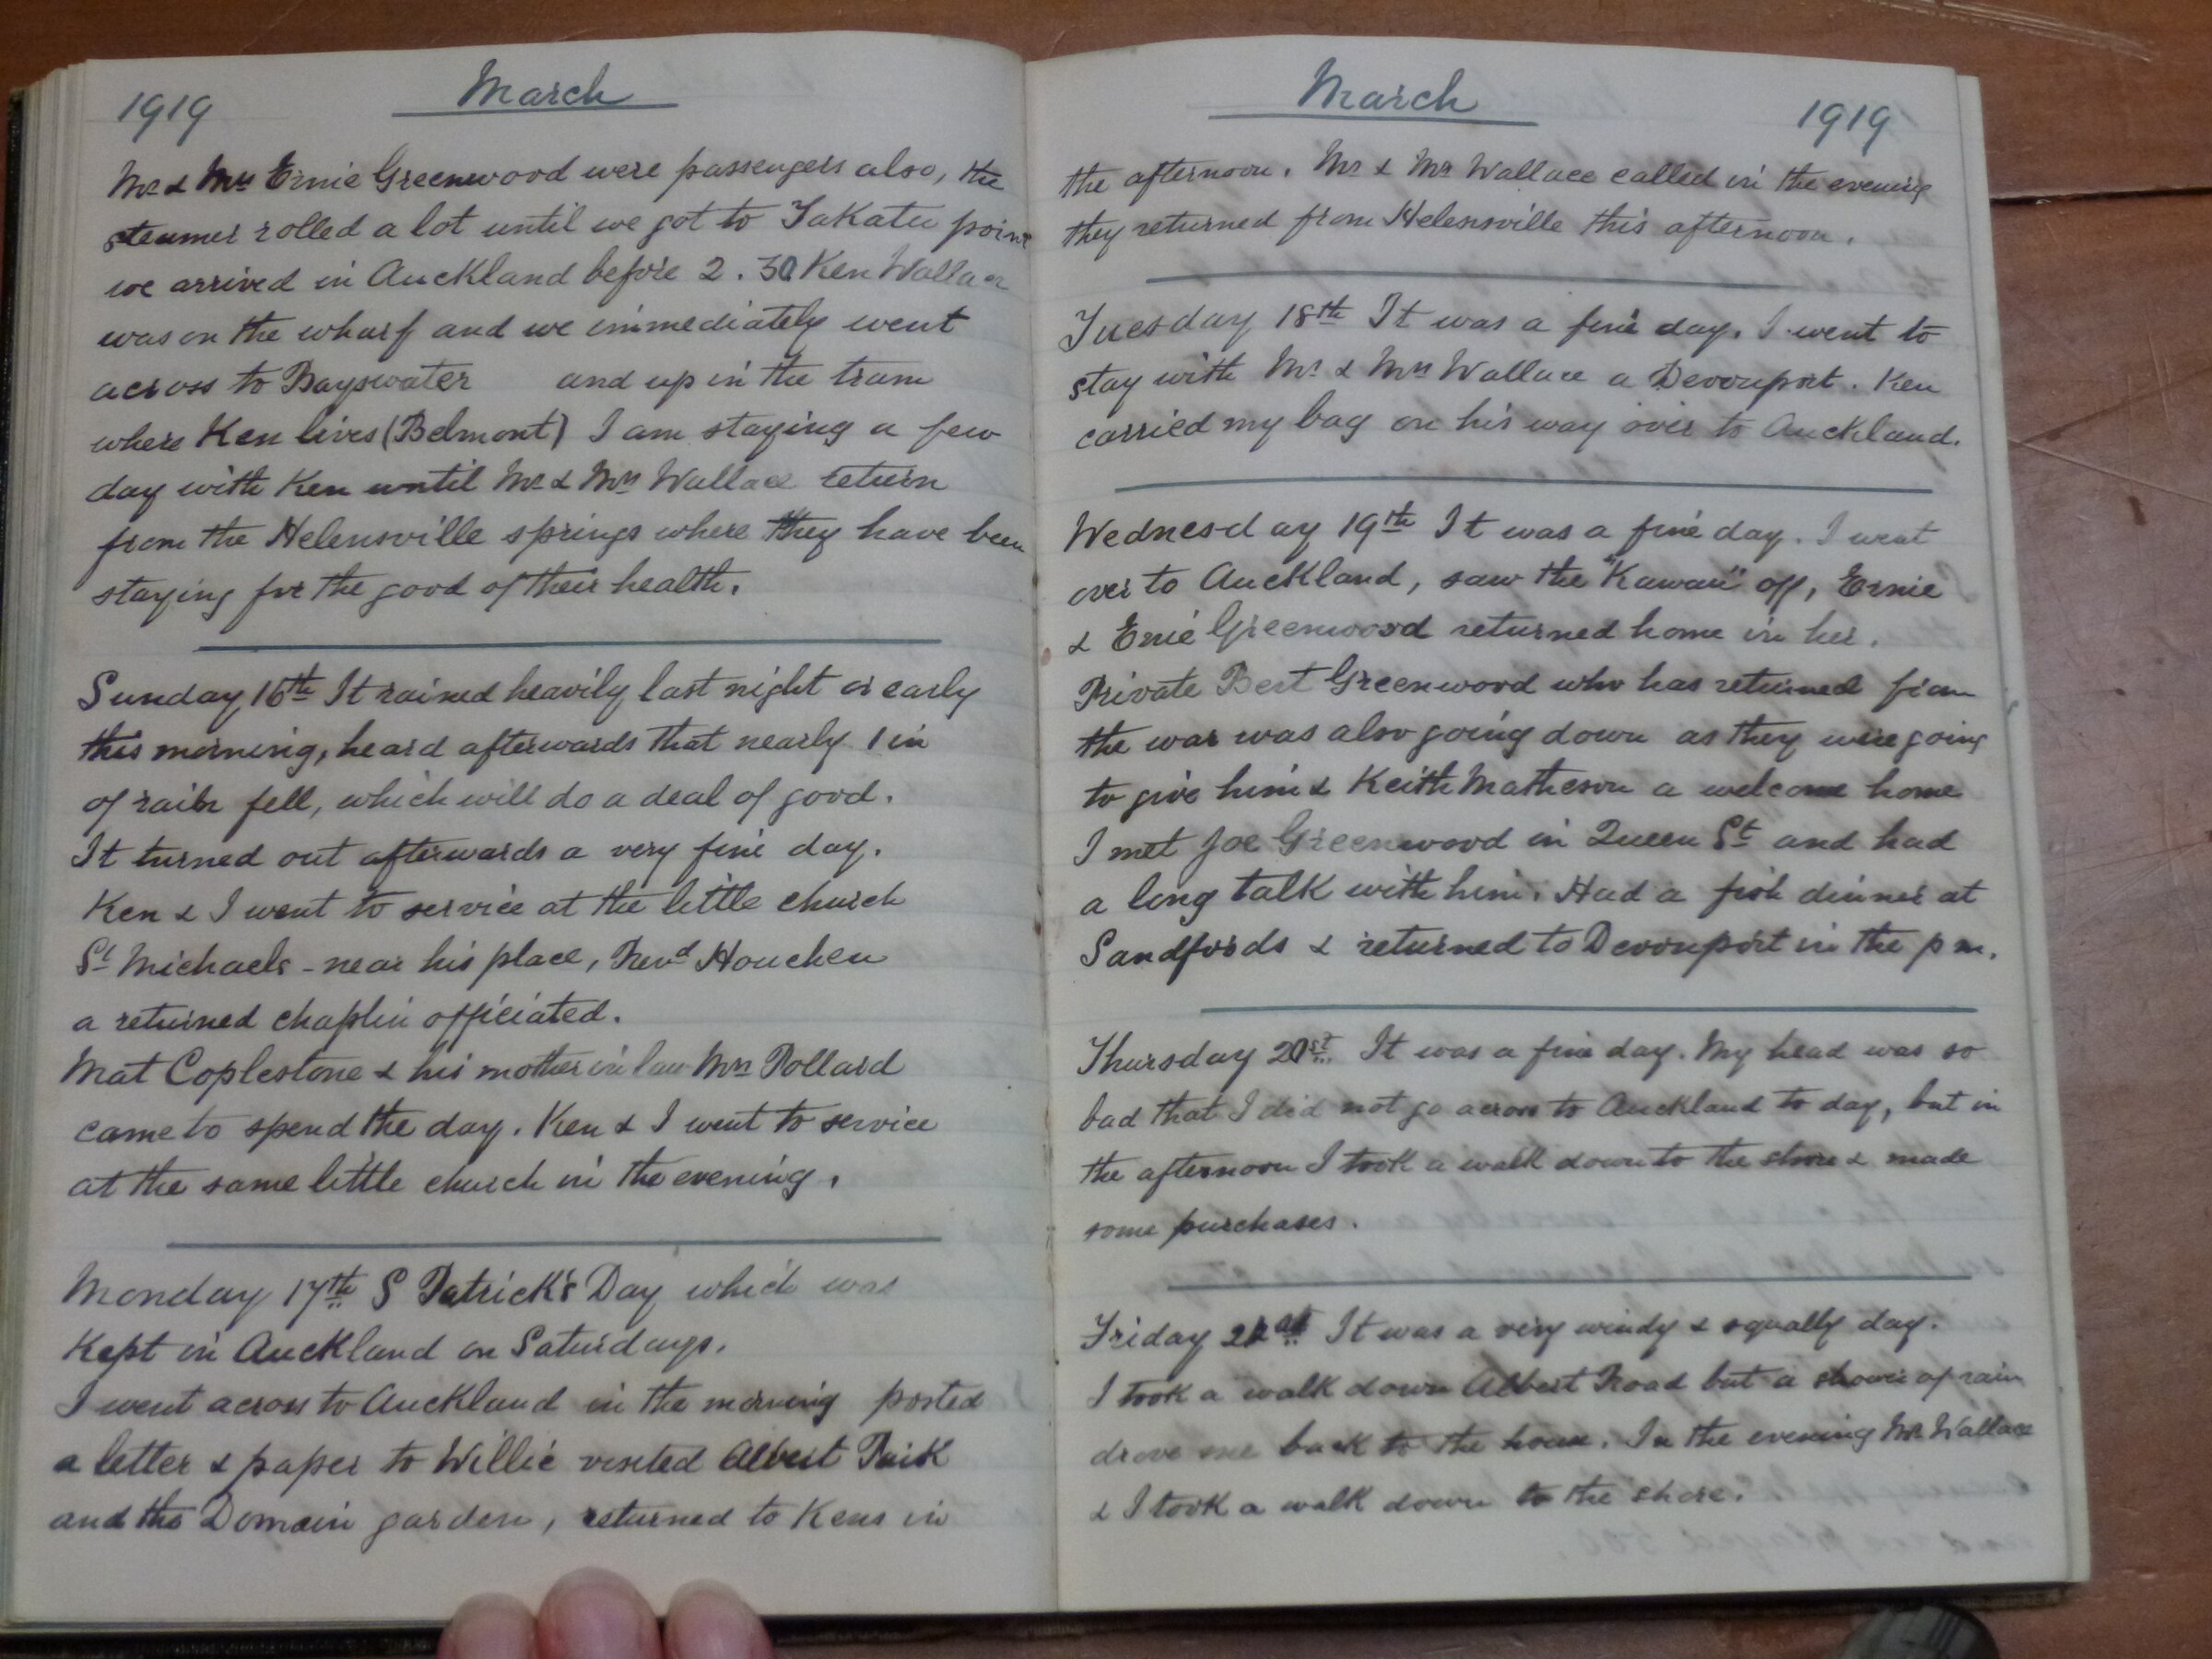 1919 March
Mr & Mrs Ernie Greenwood were passengers also, the
steamer rolled a lot until we got to Takatu point
we arrived in Auckland before 2.30 Ken Wallace
was on the wharf and we immediately went
across to Bayswater and up in the tram
where Ken lives (Belmont) I am staying a few
day with Ken until Mr & Mrs Wallace return
from the Helensville springs where they have been
staying for the good of their health.
Sunday 16th It rained heavily last night or early
this morning, heard afterwards that nearly 1 in
of rain fell, which will do a deal of good.
It turned out afterwards a very fine day.
Ken & I went to service at the little church
St Michaels - near his place, Revd Houchen
a returned chaplin officiated.
Mat Coplestone & his mother in law Mrs Pollard
came to spend the day. Ken & I went to service
at the same little church in the evening.
Monday 17th S Patrick's Day which was
Kept in Auckland on Saturdays.
I went across to Auckland in the morning posted
a letter & paper to Willie visited Albert Park
and the Domain garden, returned to Kens in
March 1919
the afternoon. Mr & Mrs Wallace called in the evening
they returned from Helensville this afternoon.
Tuesday 18th It was a fine day. I went to
stay with Mr & Mrs Wallace a Devonport. Ken
carried my bag on his way over to Auckland.
Wednesday 19th It was a fine day. I went
over to Auckland, saw the "Kawau" off, Ernie
& Enie Greenwood returned home in her.
Private Bert Greenwood who has returned from
the war was also going down as they were going
to give him & Keith Matheson a welcome home
I met Joe Greenwood in Queen St and had
a long talk with him. Had a fish dinner at
Sandfords & returned to Devonport in the pm.
Thursday 20st It was a fine day. My head was so
bad that I did not go across to Auckland to day, but in
the afternoon I took a walk down to the shore & made
some purchases.
Friday 21st It was a very windy & squally day.
I took a walk down Albert Road but a shower of rain
drove me back to the house. In the evening Mr Wallace
& I took a walk down to the shore.